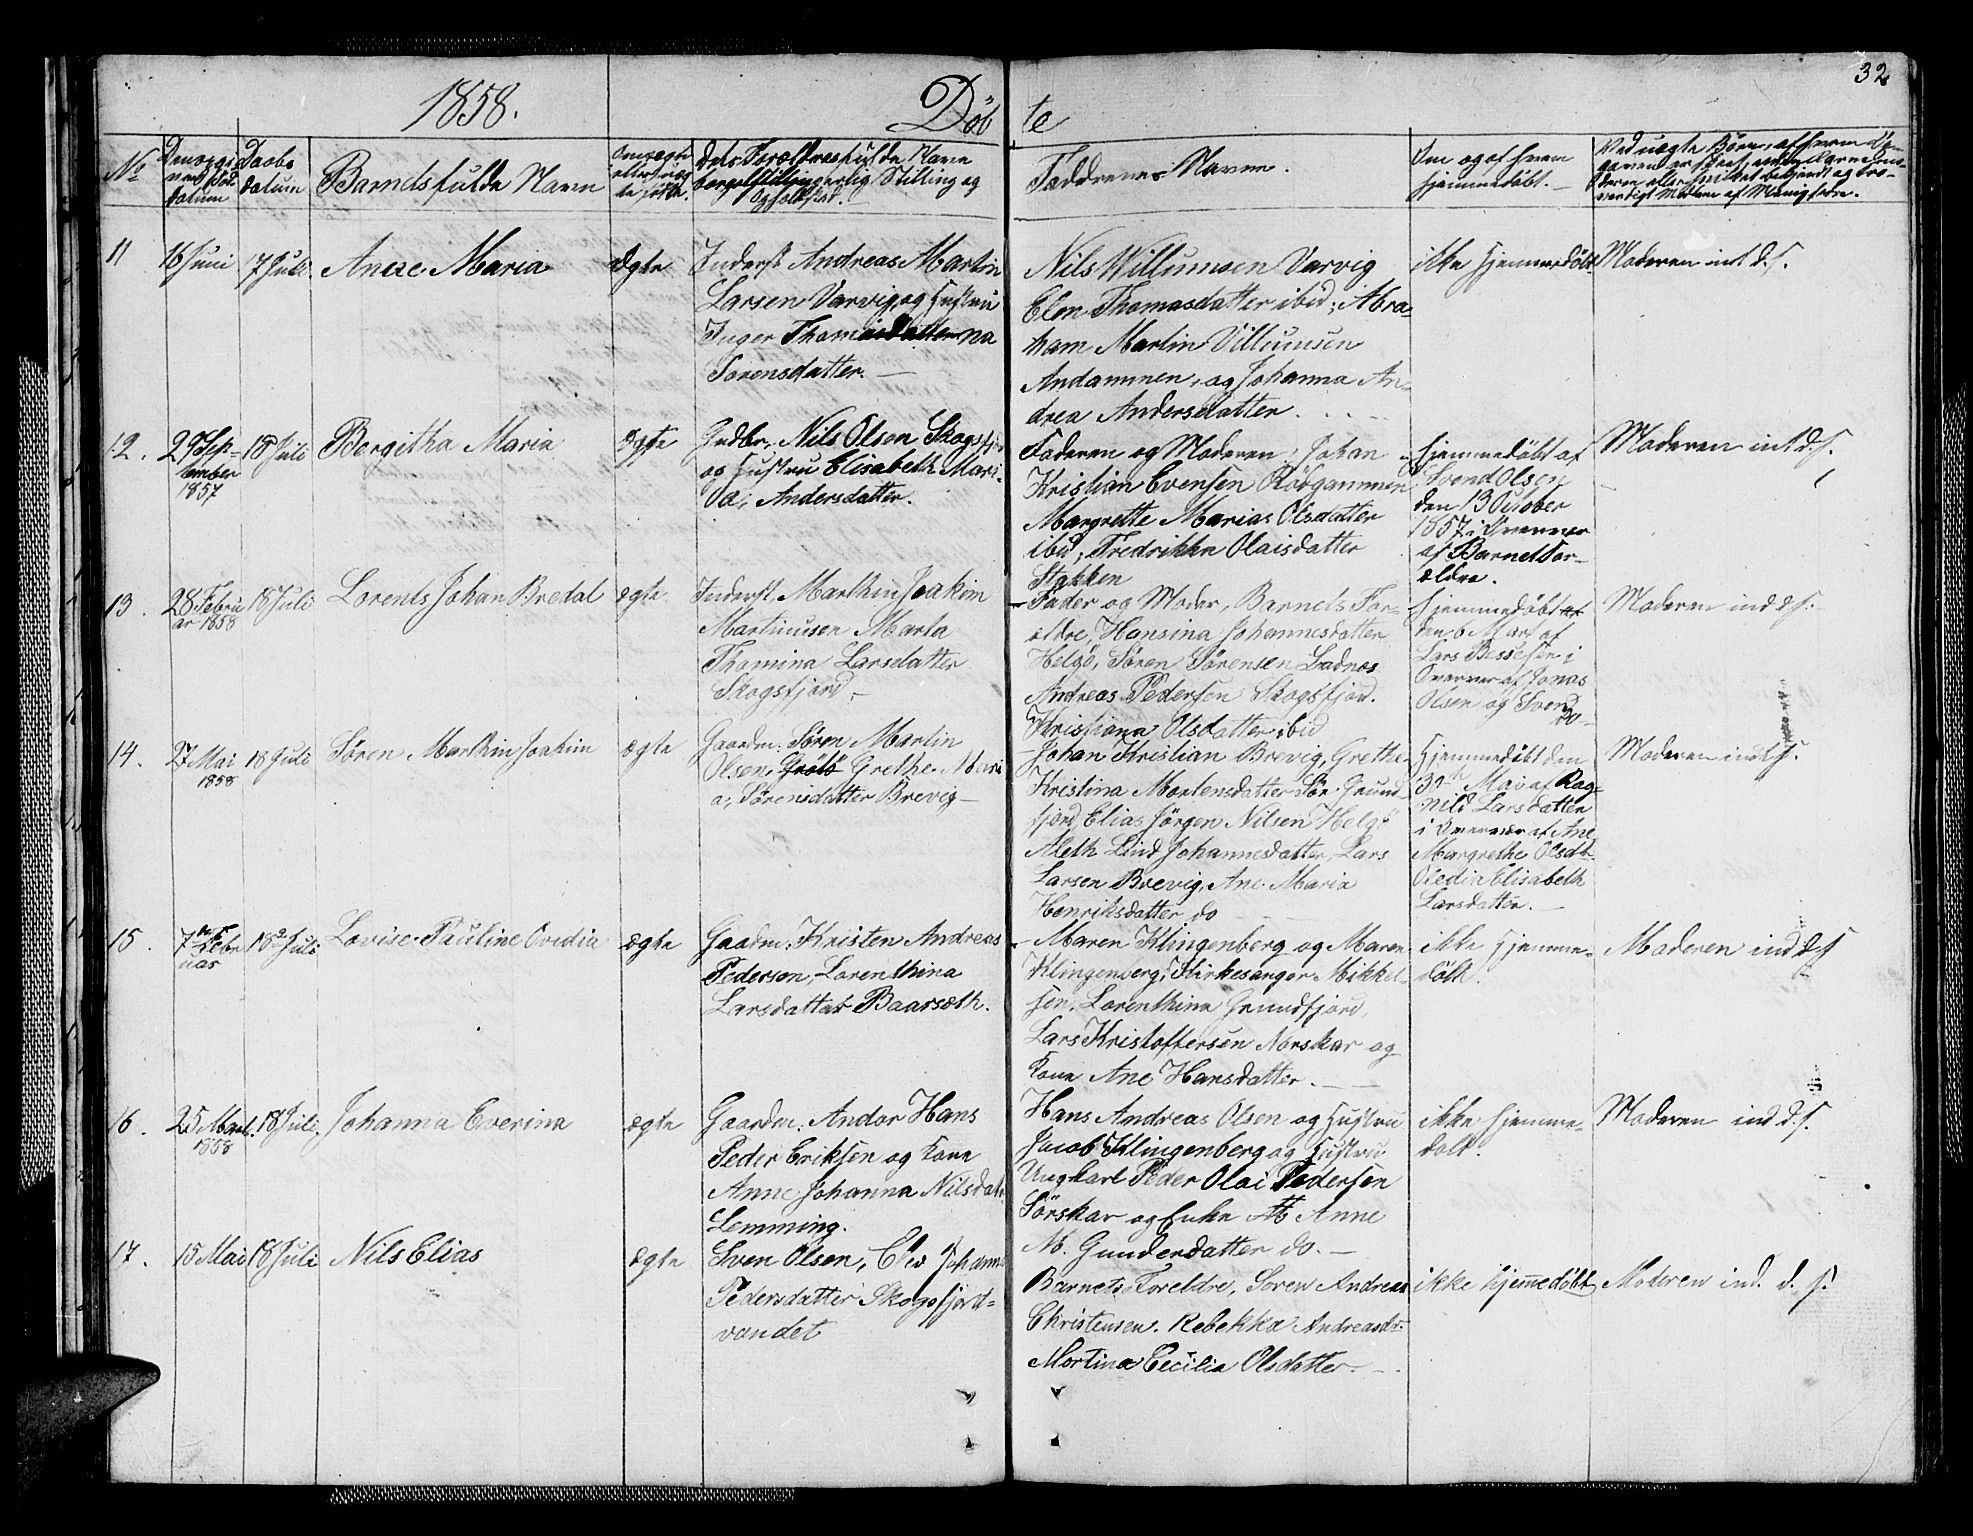 32
1858.
Döb te
No
datum
Daabs
datum
Barnets fulde Navn
Faddernes Navne.
Om og af hvem
hjemmedøbt.
11
16 Juni
17 Juli
Anne Maria
Ægte
Inderst Andreas Martin
Larsen Varvig, og Hustru
Inger Thomasdatter na
Sørensdatter.
Nils Willumsen Varvig
Elen Thomasdatter ibid; Abra-
ham Martin Villumsen
Andammen, og Johanna An-
drea Andersdatter.
ikke hjemmedöbt
Moderen int d. S.
12.
29 Sep-
tember
1857
18 Juli
Bergitha Maria
Ægte
Gudbr. Nils Olsen Skogsfj
og Hustru Elisabeth Mari-
a, Andersdatter.
Faderen og Moderen, Johan
Kristian Evensen Rödgammen
Margrette Marias Olsdatter
ibid, Fredrikka Olaisdatter
Stakken
Hjemmedöbt af
Svend Olsen
den 13 October
1857 i Overvær
af Barnets For-
ældre.
Moderen int d. S.
13.
28 Febru
ar 1858
18 Juli
Lorents Johan Bredal
ægte
Inderst, Marthin Joakim
Martinusen Marta
Thomina Larsdatter
Skogsfjord -
Fader og Moder, Barnets For-
ældre, Hansina Johannesdatter
Helgö, Sören Sörensen Ladnas
Andreas Pedersen Skogsfjord.
Kristiana Olsdatter ibid
Hjemmedöbt af
den 6 Mart af
Lars Bessesen i
Overvær af Jonas
Olsen og Svend
do-
Moderen ind d S.
14.
27 Mai
1858
18 Juli
Sören Marthin Joakim
ægte
Gaardm: Sören Martin
Olsen, Grethe Mari
a, Sörensdatter Brevig-
Johan Kristian Brevig, Grethe
Kristina Mortensdatter Sör. Grund-
fjord, Elias Jörgen Nilsen Helgö
Aleth Lind Johannesdatter, Lars
Larsen Brevig, Ane Maria
Henriksdatter do
Hjemmedöbt den
30 Mai af Rag-
nild Larsdatter
i Overvær af Ane
Margrethe Olsdt.
Oledia Elisabeth
Larsdatter.
Moderen ind d S.
15.
7 Febr
uar
18 Juli
Lovise Pauline Ovidia
ægte
Gaardm: Kristen Andreas
Pedersen, Lorenthina
Larsdatter Baarsæth.
Maren Klingenberg og Maren
Klingenberg, Kirkesanger Mikkel-
sen. Lorenthina Grundfjord,
Lars Kristoffersen Norskar og
Kone Ane Hansdatter.
ikke hjemme-
döbt.
Moderen ind d S
16.
25 Mart.
1858
18 Juli
Johanna Everina
ægte
Gaardm: Andor Hans
Peder Eriksen og Kone
Anne Johanna Nilsdatt
Lemming.
Hans Andreas Olsen og Hustru
Jacob Klingenberg og Hustru
Ungkarl Peder Olai Pedersen
Sörskar og Enke Anne
M. Gundersdatter do.
ikke hjemme-
dobt.
Moderen ind d. S.
17.
15 Mai
18 Juli
Nils Elias
ægte
Sven Olsen, Johanna
Pedersdatter Skogsfjord-
vandet
Barnets Foreldre, Soren Andreas
Christensen. Rebekka Andreasdt.
Mortina Cecilia Olsdatter.
ikke hjemmedöbt
Moderen ind. d. S.